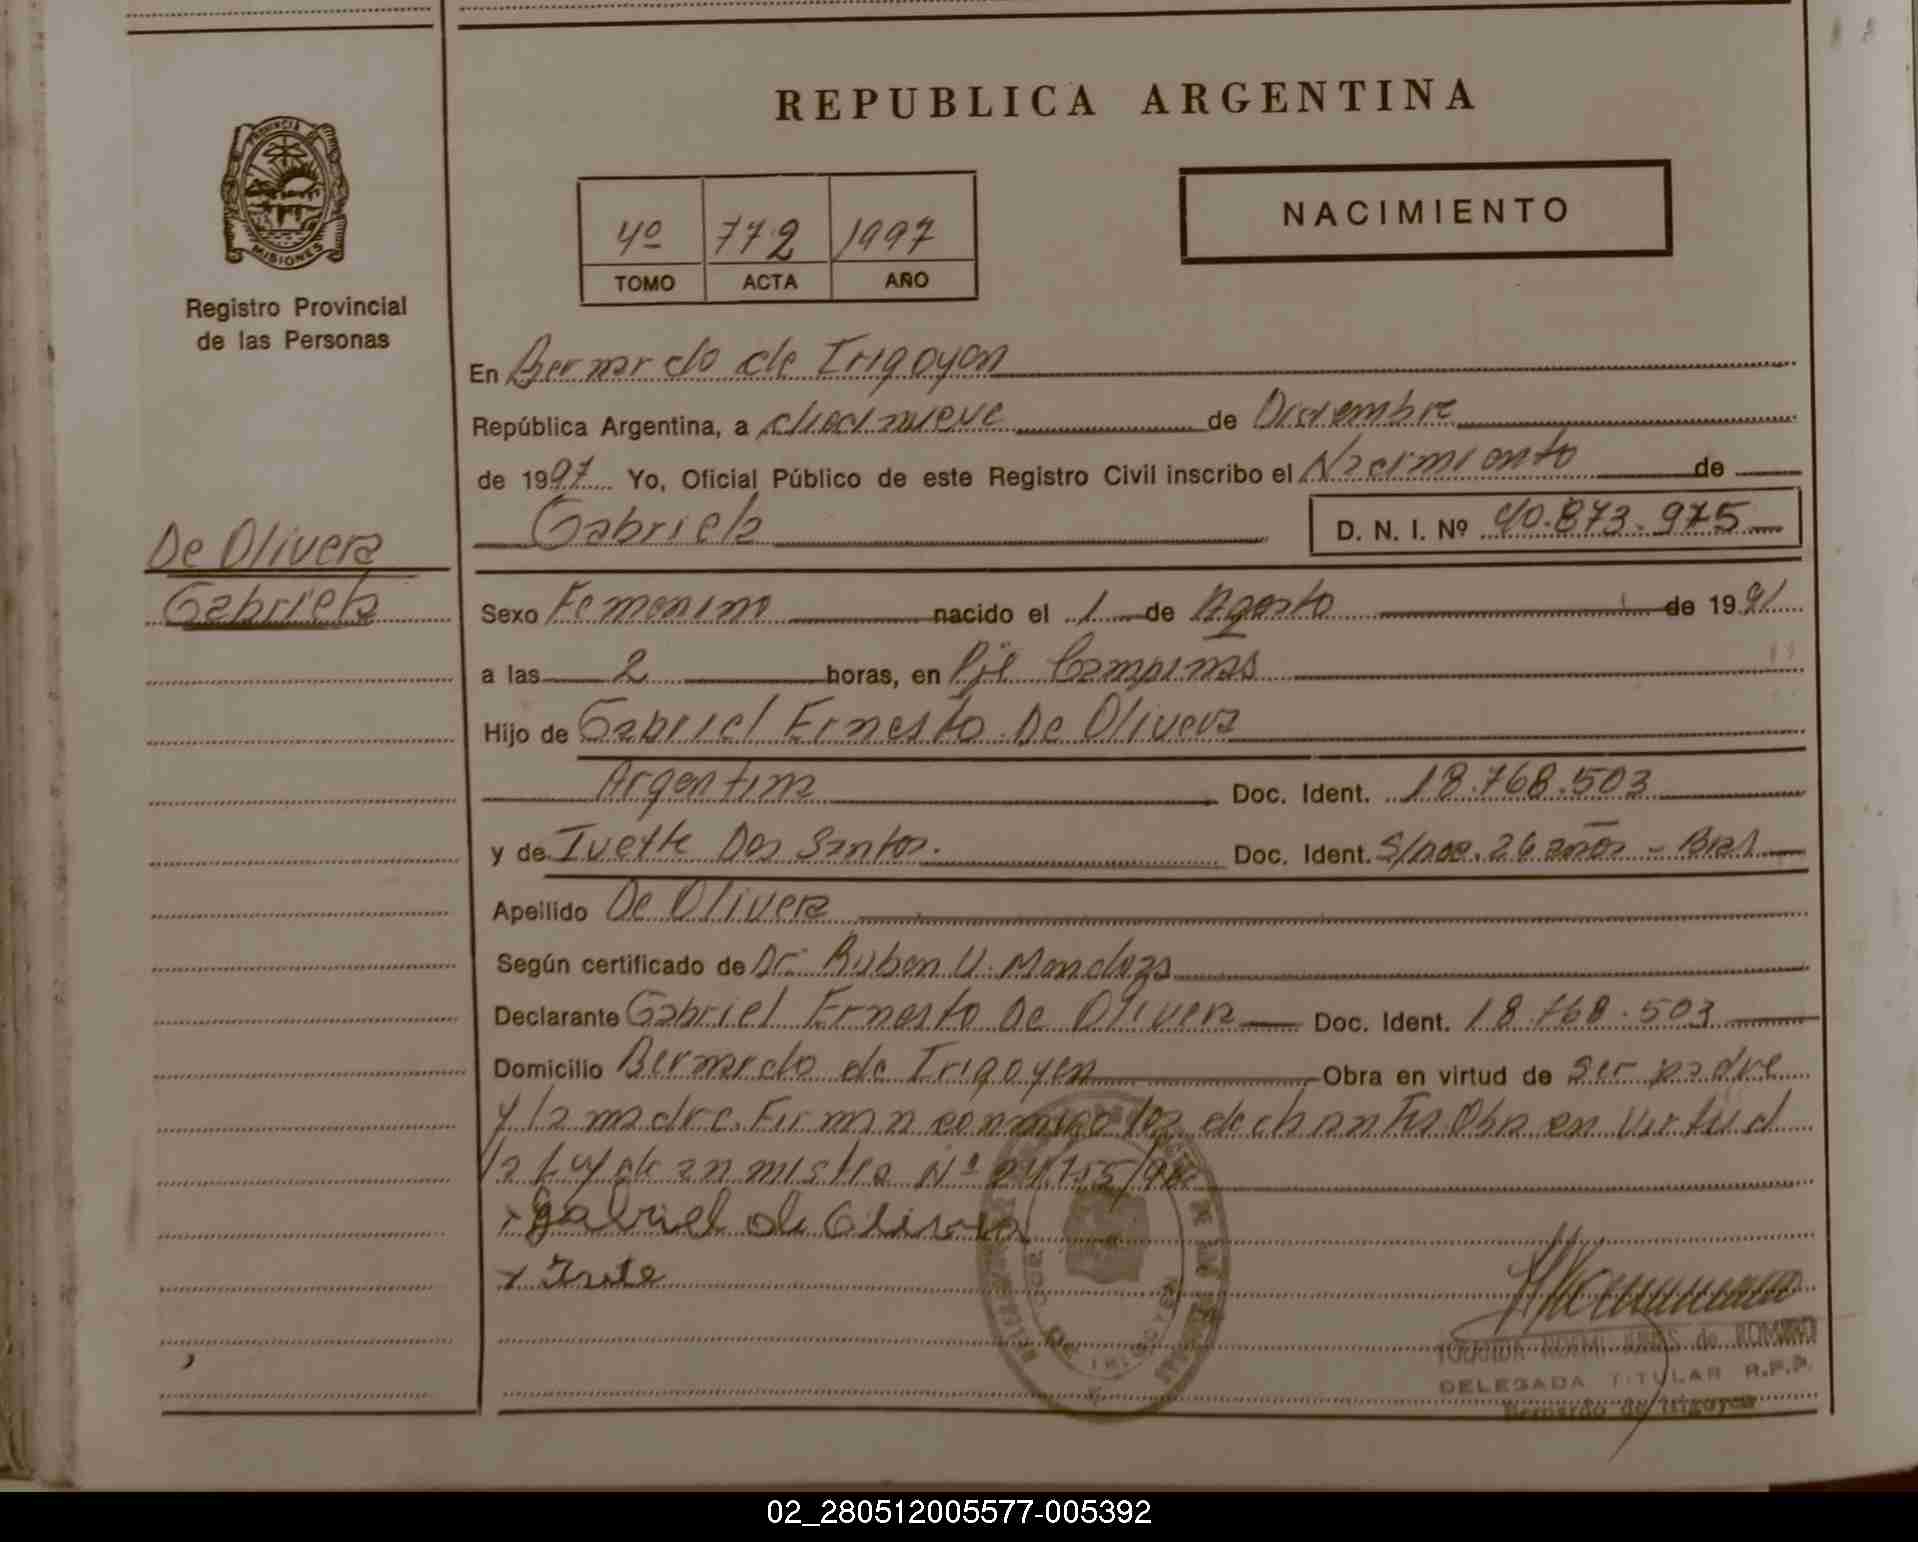 REPUBLICA ARGENTINA
PROVINCIA DE
MISIONES
Registro Provincial
de las Personas
4º 772 1997
TOMO ACTA AÑO
NACIMIENTO
De Olivera
Gabriela
En Bernardo de Irigoyen
República Argentina, a diecinueve de Diciembre
de 1997 Yo, Oficial Público de este Registro Civil inscribo el Nacimiento de
Gabriela D. N. I. Nº 40.873.975
Sexo Femenino nacido el 1 de Agosto de 1991
a las 2 horas, en Pje Campinas
Hijo de Gabriel Ernesto De Olivera
Argentina Doc. Ident. 18.768.503
y de Ivette Dos Santos. Doc. Ident. S/noc. 26 años - Bras
Apellido De Olivera
Según certificado de Dr. Ruben U. Mendoza
Declarante Gabriel Ernesto De Olivera Doc. Ident. 18.768.503
Domicilio Bernardo de Irigoyen Obra en virtud de ser padre
y la madre. Firman conmigo los declarantes Obra en virtud
la Ley de amnistia Nº
x Gabriel de Olivera
x
DELEGADA TITULAR R.P.P.
Bernardo de Irigoyen
02_280512005577-005392